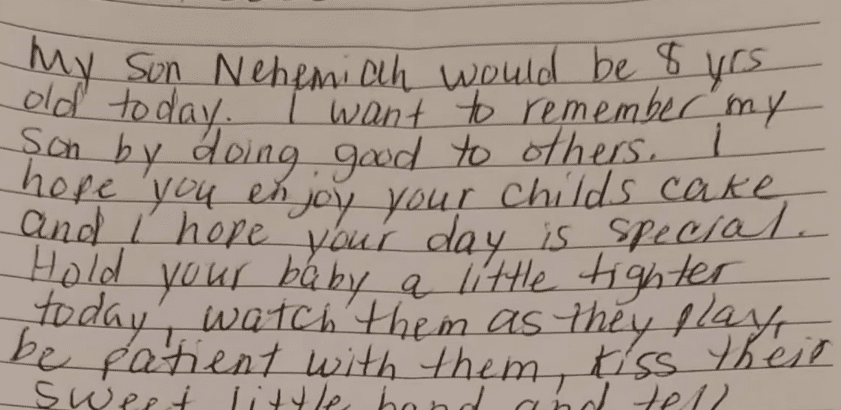 My Son Nehemiah would be 8 yrs
old today. I want to remember my
son by doing good to others. I
hope you enjoy your childs cake
and I hope your day is special.
Hold your baby a little tighter
today, watch them as they play,
be patient with them, kiss their
sweet little hand and tell